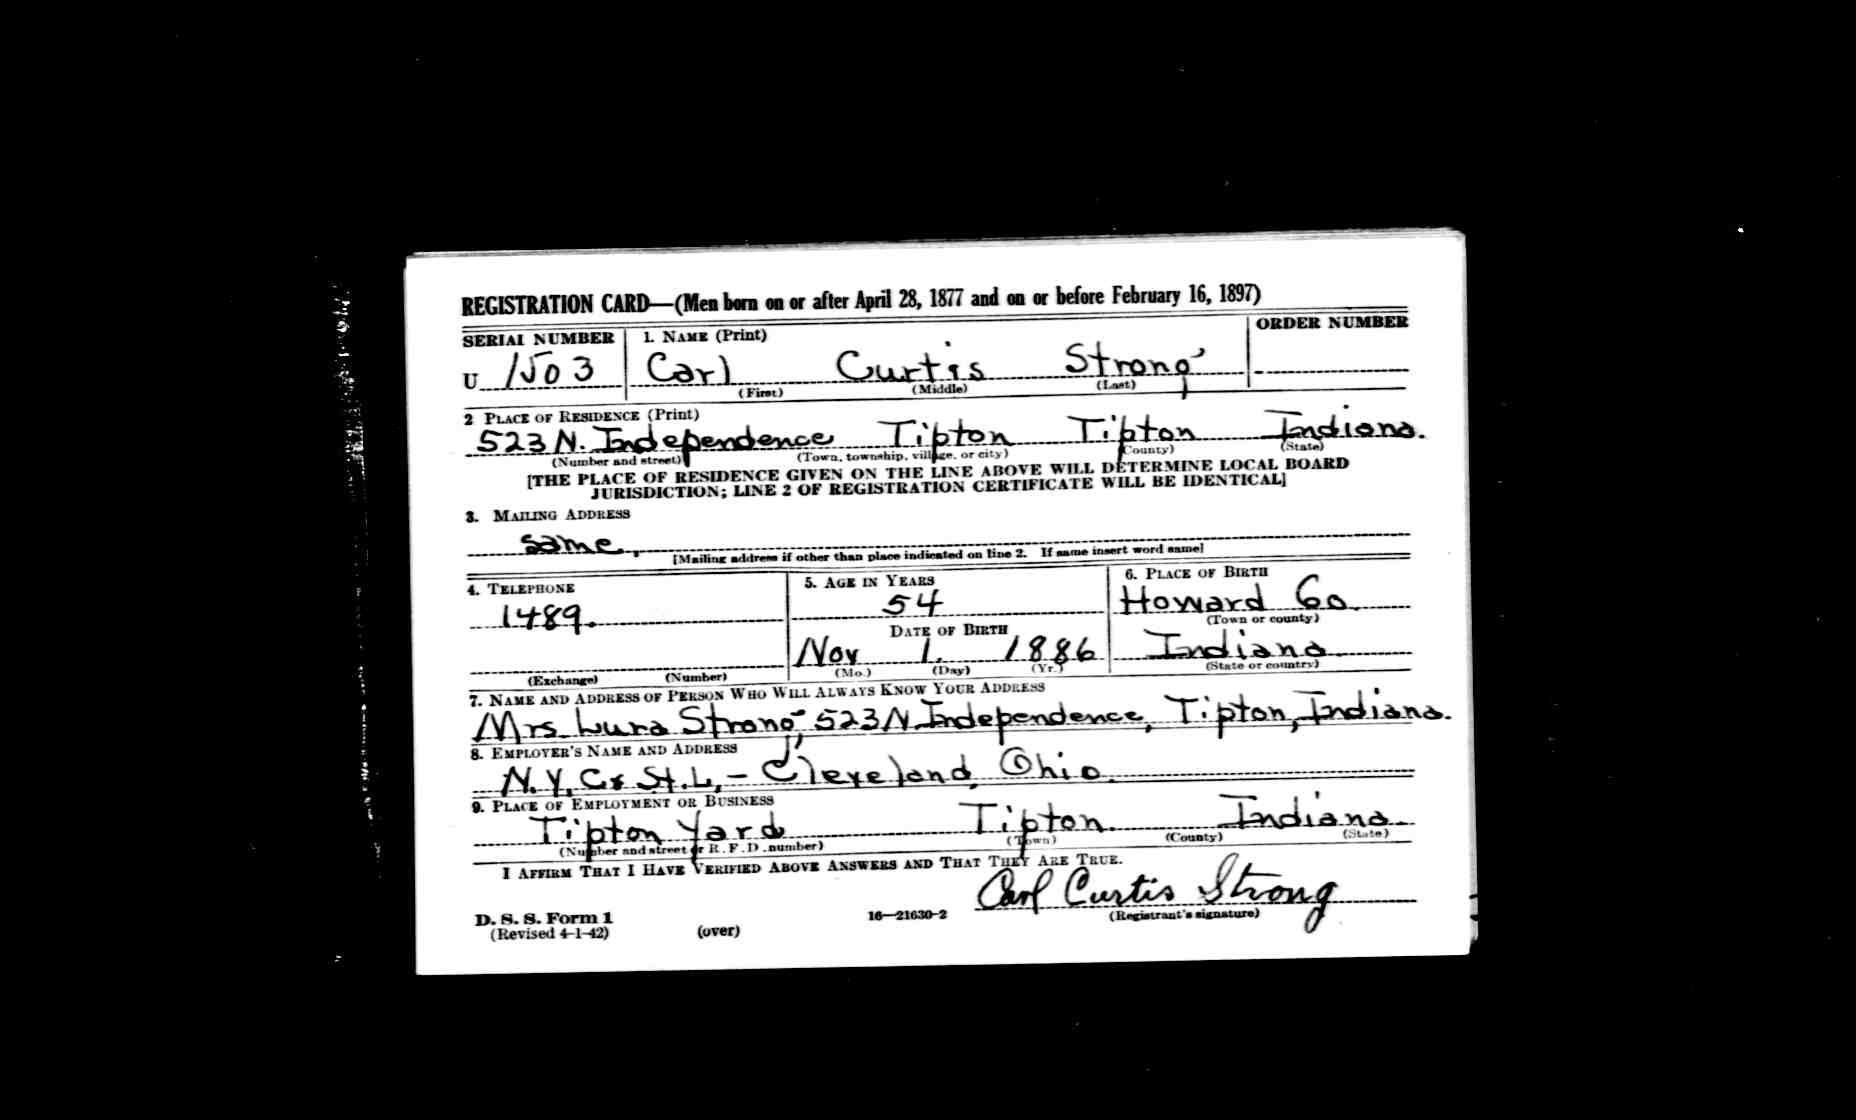 REGISTRATION CARD—(Men born on or after April 28, 1877 and on or before February 16, 1897)
SERIAL NUMBER 1. NAME (Print) ORDER NUMBER
U 1503 Carl Curtis Strong
(First) (Middle) (Last)
2 PLACE OF RESIDENCE (Print)
523 N. Independence Tipton Tipton Indiana.
(Number and street) (Town, township, village, or city) (County) (State)
[THE PLACE OF RESIDENCE GIVEN ON THE LINE ABOVE WILL DETERMINE LOCAL BOARD
JURISDICTION; LINE 2 OF REGISTRATION CERTIFICATE WILL BE IDENTICAL]
3. MAILING ADDRESS
Same.
[Mailing address if other than place indicated on line 2. If same insert word same]
4. TELEPHONE 5. AGE IN YEARS 6. PLACE OF BIRTH
1489. 54 Howard Co.
DATE OF BIRTH (Town or county)
Nov 1. 1886 Indiana
(Exchange) (Number) (Mo.) (Day) (Yr.) (State or country)
7. NAME AND ADDRESS OF PERSON WHO WILL ALWAYS KNOW YOUR ADDRESS
Mrs. Lura Strong, 523 N. Independence, Tipton, Indiana.
8. EMPLOYER'S NAME AND ADDRESS
N.Y.C. & St. L. - Cleveland, Ohio.
9. PLACE OF EMPLOYMENT OR BUSINESS
Tipton Yard Tipton. Indiana.
(Number and street or R. F. D. number) (Town) (County) (State)
I AFFIRM THAT I HAVE VERIFIED ABOVE ANSWERS AND THAT THEY ARE TRUE.
Carl Curtis Strong
D. S. S. Form 1 16—21630-2 (Registrant's signature)
(Revised 4-1-42) (over)